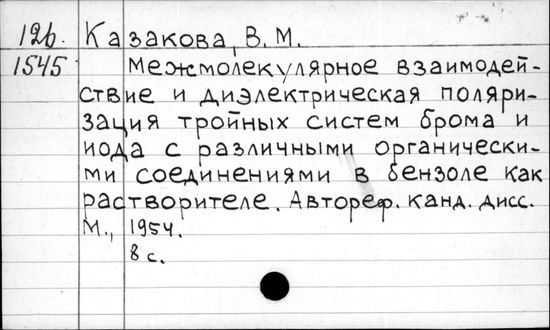 126. Казакова, В. М.
1545 Межмолекулярное взаимодей-
ствие и диэлектрическая поляри-
зация тройных систем брома и
иода с различными органически-
ми соединениями в бензоле как
растворителе. Автореф. канд. дисс.
М., 1954.
8 с.